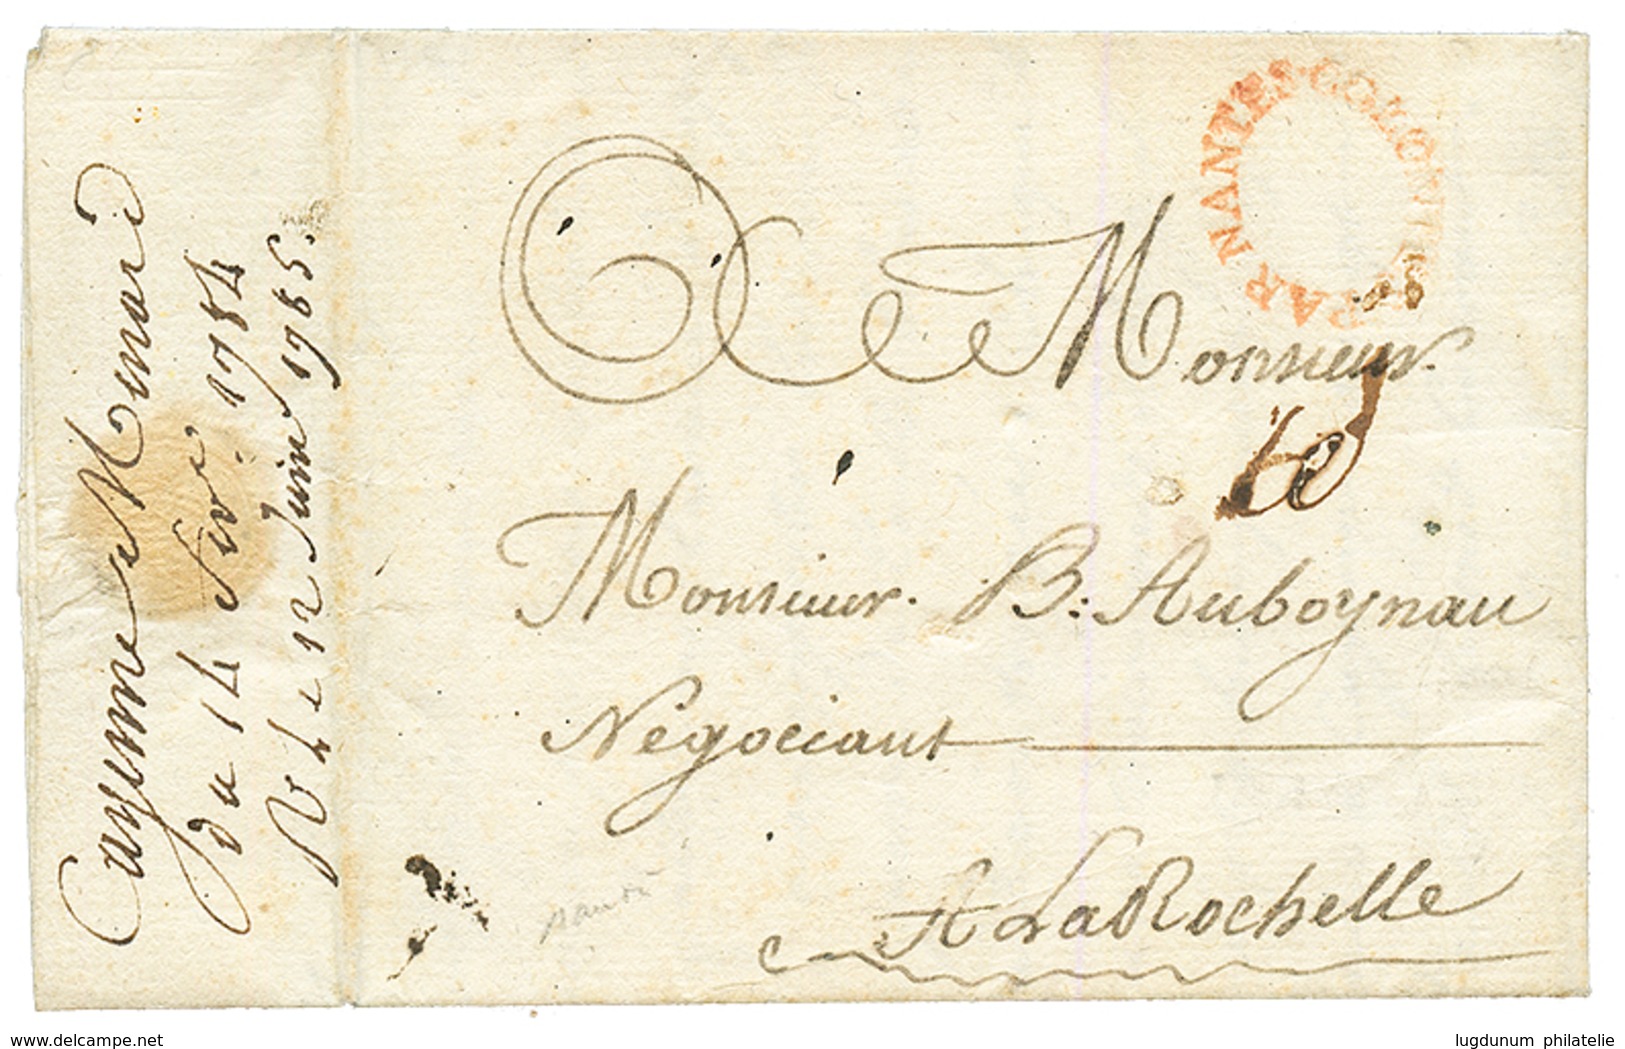 Cayenne Menard
du 14 Nov.e 1784
R le 12 Juin 1785.
COLONIES PAR NANTES
A Monsieur
Monsieur B: Auboynau
Négociant
A La Rochelle
delcampe.net
lugdunum philatelie